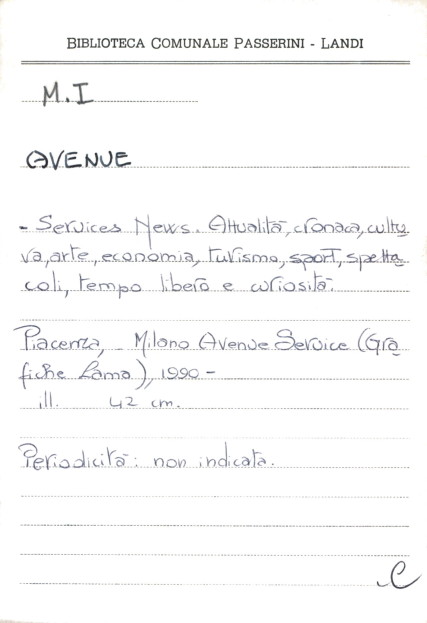 BIBLIOTECA COMUNALE PASSERINI - LANDI
M.I
AVENUE
- Services News. Attualità, cronaca, cultu
ra, arte, economia, turismo, sport, spetta
coli, tempo libero e curiosità.
Piacenza, Milano Avenue Service (Gra
fiche Lama), 1990 -
ill. 42 cm.
Periodicità: non indicata.
C